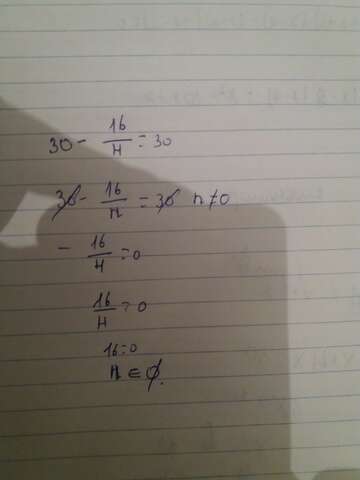 30 - 16/n = 30
30 - 16/n = 30 n ≠ 0
- 16/n = 0
16/n = 0
16 = 0
n ∈ ∅.